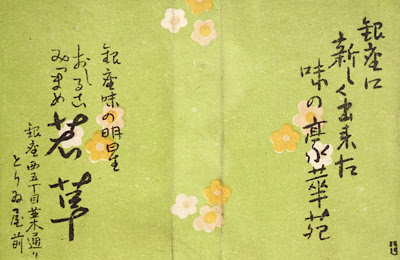 銀座に
新しく出来た
味の豪華苑
銀座味の明星
おしるこ
みつまめ
若草
銀座西五丁目並木通り
とりゐ屋前